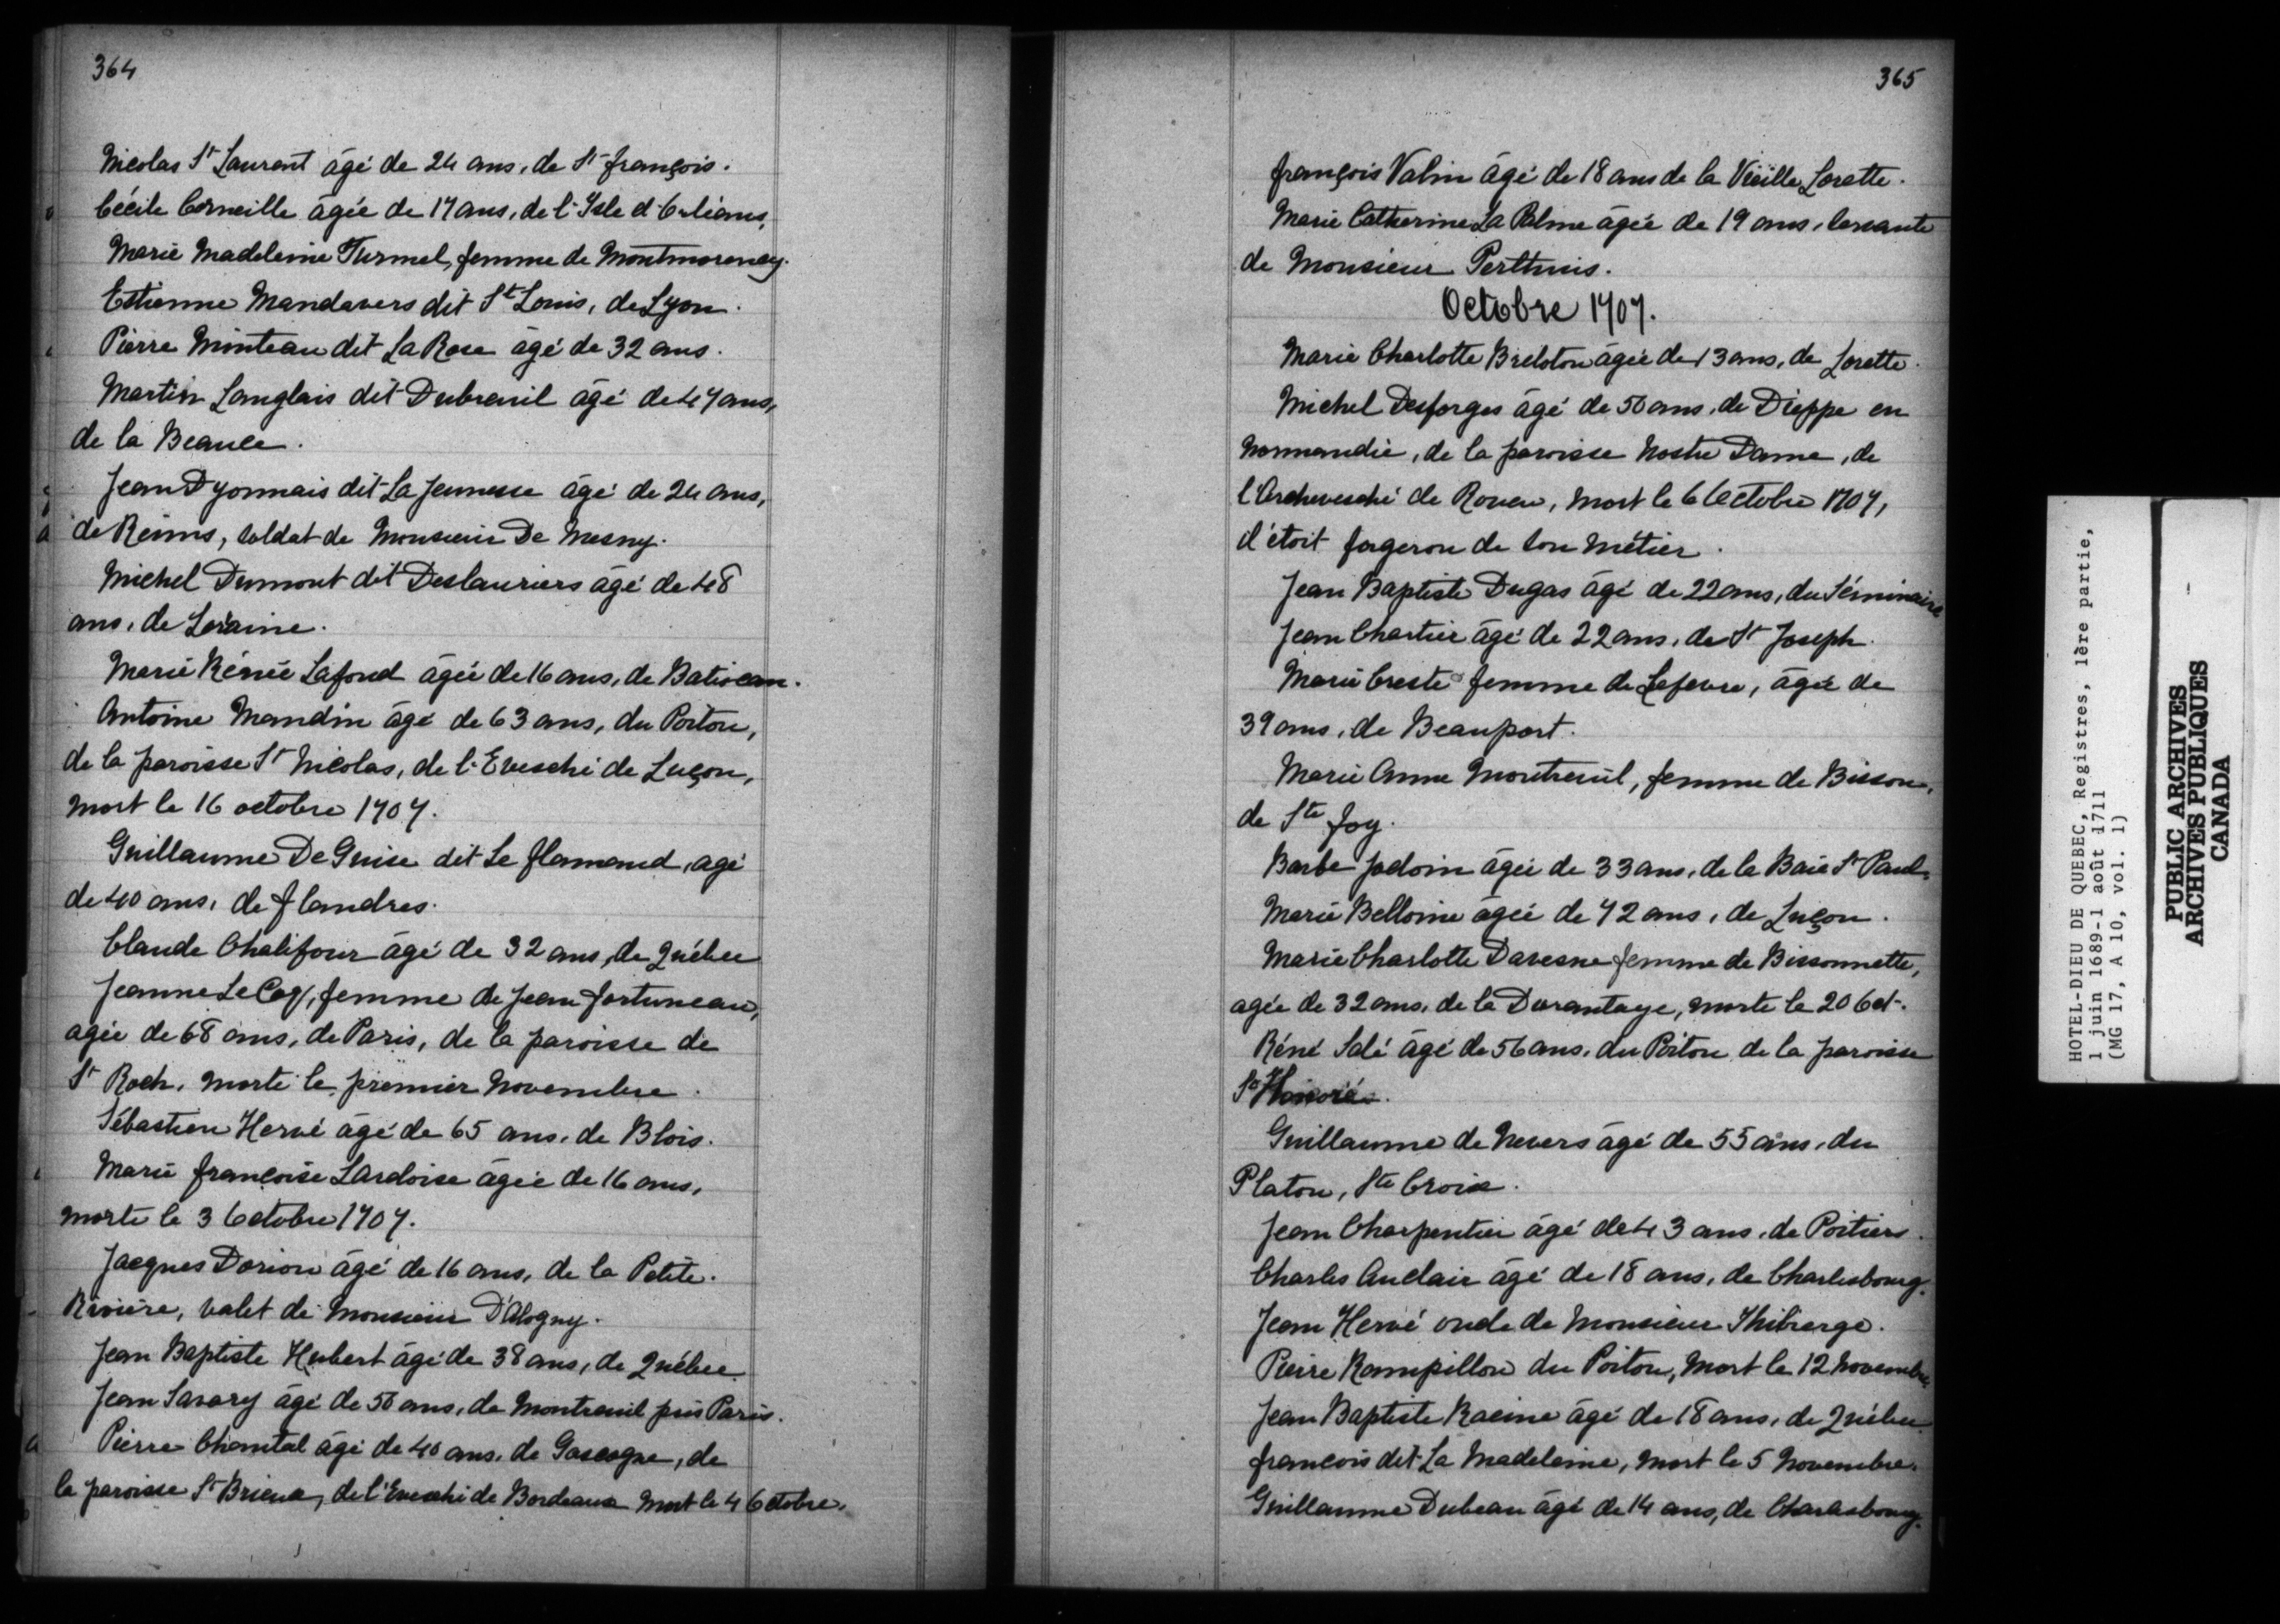 364
Nicolas St Laurent âgé de 24 ans, de St françois.
Cécile Corneille âgée de 17 ans, de l'Isle d'Orléans,
Marie Madeleine Turmel, femme de Montmorency.
Estienne Mandavers dit St Louis, de Lyon.
Pierre Minteau dit La Rose âgé de 32 ans.
Martin Langlais dit Dubreuil âgé de 47 ans,
de la Beauce.
Jean Dyonnais dit La Jeunesse âgé de 24 ans,
de Reims, soldat de Monsieur De Mesny.
Michel Dumont dit Deslauriers âgé de 48
ans, de Loraine.
Marie Rénée Lafond âgée de 16 ans, de Batiscan.
Antoine Mandin âgé de 63 ans, du Poitou,
de la paroisse St Nicolas, de l'Evesché de Luçon,
mort le 16 octobre 1707.
Guillaume De Guise dit Le flamand, agé
de 40 ans, de flandres.
Claude Chalifour âgé de 32 ans, de Québec
Jeanne Le Coq, femme de Jean fortuneau,
agée de 68 ans, de Paris, de la paroisse de
St Roch, morte le premier Novembre.
Sébastien Hervé âgé de 65 ans, de Blois.
Marie françoise Lardoise âgée de 16 ans,
morte le 3 Octobre 1707.
Jacques Dorion âgé de 16 ans, de la Petite.
Rivière, valet de Monsieur D'Alogny.
Jean Baptiste Hubert âgé de 38 ans, de Québec
Jean Savary âgé de 50 ans, de Montreuil près Paris.
Pierre Chantal âgé de 40 ans, de Gascogne, de
la paroisse St Brieux, de l'Evesché de Bordeaux mort le 4 Octobre.
365
françois Valin âgé de 18 ans de la Vieille Lorette.
Marie Catherine La Palme âgée de 19 ans, servante
de Monsieur Perthuis.
Octobre 1707.
Marie Charlotte Breloton âgée de 13 ans, de Lorette.
Michel Desforges âgé de 50 ans, de Dieppe en
Normandie, de la paroisse Nostre Dame, de
l'Archevesché de Rouen, mort le 6 Octobre 1707,
il étoit forgeron de son métier.
Jean Baptiste Dugas âgé de 22 ans, du Séminaire
Jean Chartier âgé de 22 ans, de St Joseph.
Marie Creste femme de Lefevre, âgée de
39 ans, de Beauport.
Marie Anne Montreuil, femme de Bisson,
de Ste foy.
Barbe Jodoin âgée de 33 ans, de la Baie St Paul.
Marie Belloine âgée de 72 ans, de Luçon.
Marie Charlotte Davesne femme de Bissonnette,
agée de 32 ans, de la Durantaye, morte le 20 Oct.
Réné Salé âgé de 56 ans, du Poitou de la paroisse
St Honoré.
Guillaume de Nevers âgé de 55 ans, du
Platon, Ste Croix.
Jean Charpentier âgé de 43 ans, de Poitiers.
Charles Auclair âgé de 18 ans, de Charlesbourg.
Jean Hervé oncle de Monsieur Thibierge.
Pierre Rampillon du Poitou, mort le 12 novembre
Jean Baptiste Racine âgé de 18 ans, de Québec.
françois dit La Madeleine, mort le 5 Novembre.
Guillaume Dubeau âgé de 14 ans, de Charlesbourg.
HOTEL-DIEU DE QUEBEC, Registres, 1ère partie,
1 juin 1689-1 août 1711
(MG 17, A 10, vol. 1)
PUBLIC ARCHIVES
ARCHIVES PUBLIQUES
CANADA